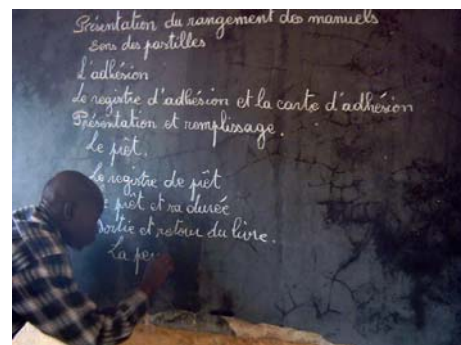 Présentation du rangement des manuels
Sens des pastilles
L'adhésion
Le registre d'adhésion et la carte d'adhésion
Présentation et remplissage.
Le prêt.
Le registre de prêt
prêt et sa durée
sortie et retour du livre.
La